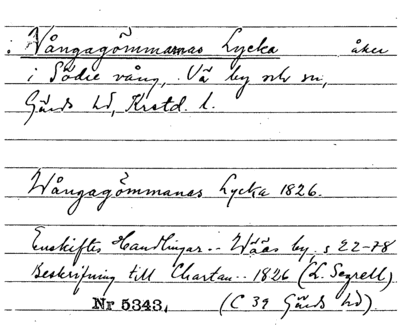 : Wångagömmarnas Lycka åker
i Södre vång, Vä by och sn,
Gärds hd, Krstd. l.
Wångagömmanas Lycka 1826.
Enskiftes Handlingar.. Wääs by. s 22-78
Beskrifning till Chartan.. 1826 (L. Segrell)
Nr 5343. (C 39 Gärds hd)